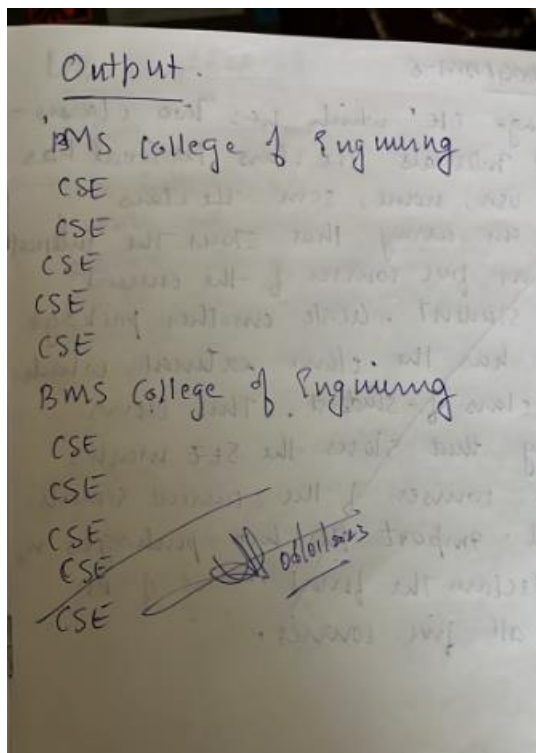 Output.
BMS College of Enginering
CSE
CSE
CSE
CSE
CSE
BMS College of Enginering
CSE
CSE
CSE
CSE
CSE
06/01/2023